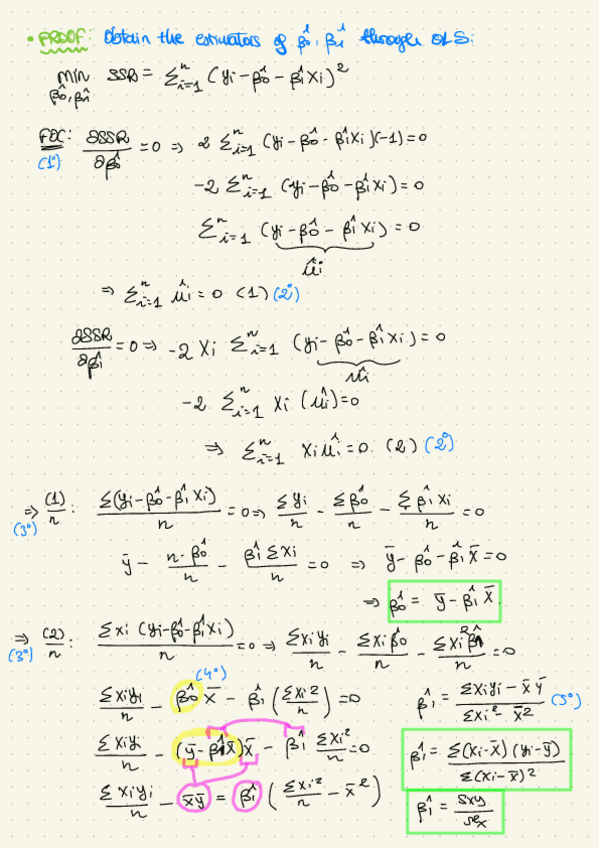 • PROOF: Obtain the estimators of β̂₀, β̂₁ through OLS:
min SSR = Σᵢ₌₁ⁿ (yᵢ - β̂₀ - β̂₁xᵢ)²
β̂₀, β̂₁
FOC: ∂SSR/∂β̂₀ = 0 ⇒ 2 Σᵢ₌₁ⁿ (yᵢ - β̂₀ - β̂₁xᵢ)(-1) = 0
(1º)
-2 Σᵢ₌₁ⁿ (yᵢ - β̂₀ - β̂₁xᵢ) = 0
Σᵢ₌₁ⁿ (yᵢ - β̂₀ - β̂₁xᵢ) = 0
ûᵢ
⇒ Σᵢ₌₁ⁿ ûᵢ = 0 (1) (2º)
∂SSR/∂β̂₁ = 0 ⇒ -2 xᵢ Σᵢ₌₁ⁿ (yᵢ - β̂₀ - β̂₁xᵢ) = 0
ûᵢ
-2 Σᵢ₌₁ⁿ xᵢ (ûᵢ) = 0
⇒ Σᵢ₌₁ⁿ xᵢûᵢ = 0. (2) (2º)
⇒ (1)/n : Σ(yᵢ - β̂₀ - β̂₁xᵢ)/n = 0 ⇒ Σyᵢ/n - Σβ̂₀/n - Σβ̂₁xᵢ/n = 0
(3º)
ȳ - n·β̂₀/n - β̂₁Σxᵢ/n = 0 ⇒ ȳ - β̂₀ - β̂₁x̄ = 0
⇒ β̂₀ = ȳ - β̂₁x̄.
⇒ (2)/n : Σxᵢ(yᵢ - β̂₀ - β̂₁xᵢ)/n = 0 ⇒ Σxᵢyᵢ/n - Σxᵢβ̂₀/n - Σxᵢ²β̂₁/n = 0
(3º)
(4º)
Σxᵢyᵢ/n - β̂₀x̄ - β̂₁(Σxᵢ²/n) = 0
Σxᵢyᵢ/n - (ȳ - β̂₁x̄)x̄ - β̂₁ Σxᵢ²/n = 0
Σxᵢyᵢ/n - x̄ȳ = β̂₁(Σxᵢ²/n - x̄²)
β̂₁ = (Σxᵢyᵢ - x̄ȳ)/(Σxᵢ² - x̄²) (5º)
β̂₁ = Σ(xᵢ - x̄)(yᵢ - ȳ)/Σ(xᵢ - x̄)²
β̂₁ = Sxy/S²x